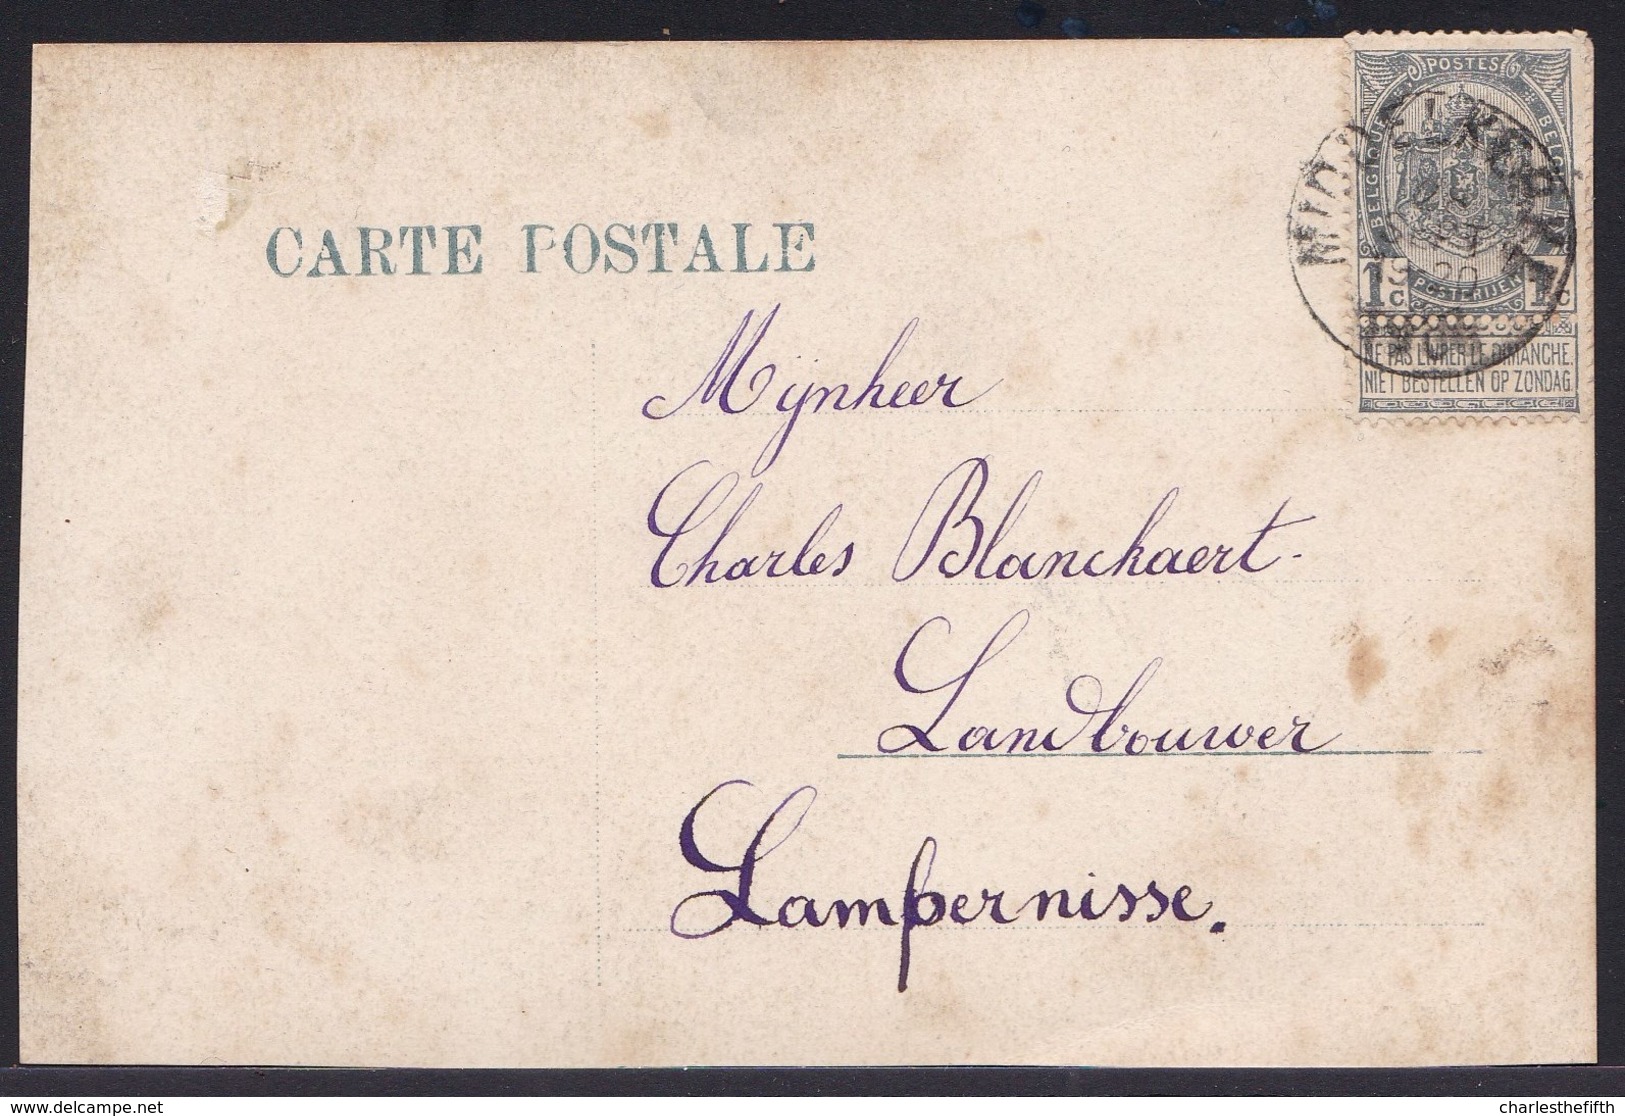 POSTES
BELGIQUE
BELGIË
MIDDELKERKE
1c 1c
POSTERIJEN
NE PAS LIVRER LE DIMANCHE.
NIET BESTELLEN OP ZONDAG
CARTE POSTALE
Mijnheer
Charles Blanckaert.
Landbouwer
Lampernisse.
charlesthefifth
© delcampe.net